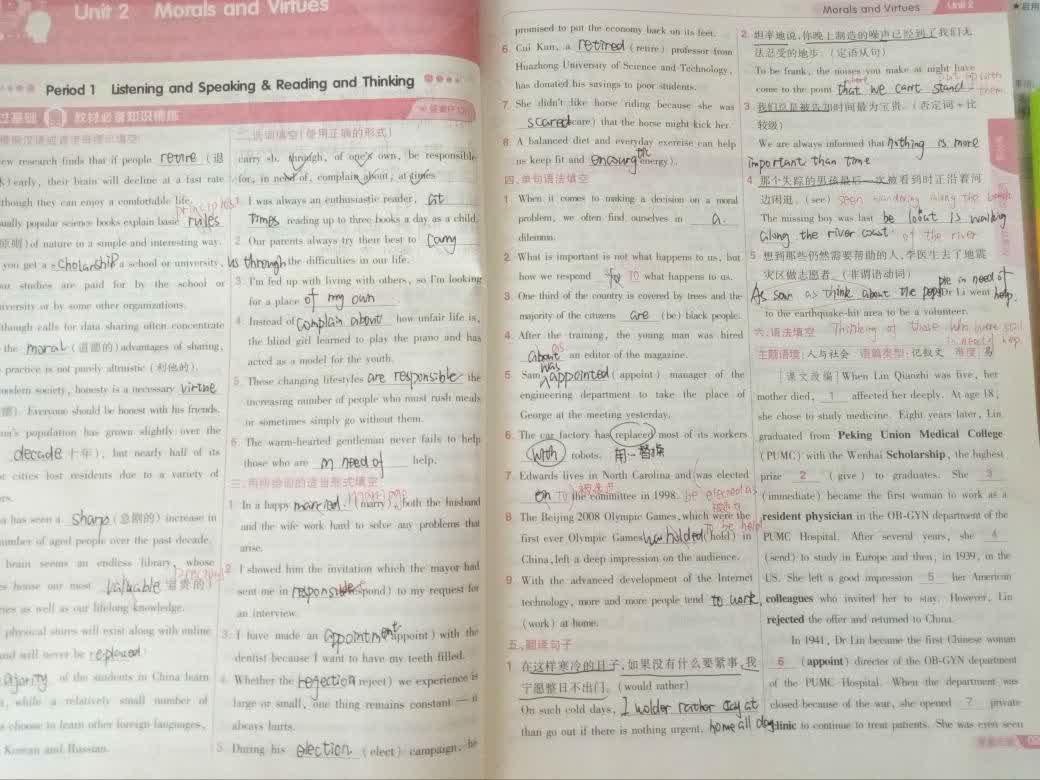 Unit 2 Morals and Virtues
Period 1 Listening and Speaking & Reading and Thinking
教材必备知识精练
ew research finds that if people retire (退
)early, their brain will decline at a fast rate
though they can enjoy a comfortable life.
principles
ually popular science books explain basic rules
原则) of nature in a simple and interesting way.
you get a scholarship a school or university,
ur studies are paid for by the school or
iversity or by some other organizations.
though calls for data sharing often concentrate
the moral (道德的) advantages of sharing,
practice is not purely altruistic (利他的).
modern society, honesty is a necessary virtue
德). Everyone should be honest with his friends.
na's population has grown slightly over the
decade (十年), but nearly half of its
cities lost residents due to a variety of
ers.
a has seen a sharp (急剧的) increase in
number of aged people over the past decade.
brain seems an endless library, whose
precious
house our most valuable 贵的)
ries as well as our lifelong knowledge.
physical stores will exist along with online
and will never be replaced
ajority of the students in China learn
, while a relatively small number of
choose to learn other foreign languages,
Korean and Russian.
二、选词填空(使用正确的形式)
carry sb. through, of one's own, be responsible
for, in need of, complain about, at times
1 I was always an enthusiastic reader, at
times reading up to three books a day as a child.
2 Our parents always try their best to carry
us through the difficulties in our life.
3 I'm fed up with living with others, so I'm looking
for a place of my own
4 Instead of complain about how unfair life is,
the blind girl learned to play the piano and has
acted as a model for the youth.
5 These changing lifestyles are responsible the
increasing number of people who must rush meals
or sometimes simply go without them.
6 The warm-hearted gentleman never fails to help
those who are in need of help.
三、用所给词的适当形式填空
1 In a happy married (marry), both the husband
and the wife work hard to solve any problems that
arise.
2 I showed him the invitation which the mayor had
sent me in response spond) to my request for
an interview.
3 I have made an appointment appoint) with the
dentist because I want to have my teeth filled.
4 Whether the rejection reject) we experience is
large or small, one thing remains constant — it
always hurts.
5 During his election (elect) campaign, he
promised to put the economy back on its feet.
6 Cui Kun, a retired (retire) professor from
Huazhong University of Science and Technology,
has donated his savings to poor students.
7 She didn't like horse riding because she was
scared care) that the horse might kick her.
8 A balanced diet and everyday exercise can help
us keep fit and energy).
四、单句语法填空
1 When it comes to making a decision on a moral
problem, we often find ourselves in a
dilemma.
2 What is important is not what happens to us, but
how we respond to what happens to us.
3 One third of the country is covered by trees and the
majority of the citizens are (be) black people.
4 After the training, the young man was hired
as
about an editor of the magazine.
was
5 Sam appointed (appoint) manager of the
engineering department to take the place of
George at the meeting yesterday.
6 The car factory has replaced most of its workers
with robots. 用…替换
7 Edwards lives in North Carolina and was elected
on to the committee in 1998.
8 The Beijing 2008 Olympic Games, which were the
first ever Olympic Games was holded (hold) in
China, left a deep impression on the audience.
9 With the advanced development of the Internet
technology, more and more people tend to work
(work) at home.
五、翻译句子
1 在这样寒冷的日子,如果没有什么要紧事,我
宁愿整日不出门。(would rather)
On such cold days, I wolder rather day at
than go out if there is nothing urgent. home all day
Morals and Virtues Unit 2
2. 坦率地说,你晚上制造的噪声已经到了我们无
法忍受的地步。(定语从句)
To be frank, the noises you make at night have
where put up with
come to the point that we can't stand them
3 我们总是被告知时间最为宝贵。(表定词+比
较级)
We are always informed that nothing is more
important than time
4 那个失踪的男孩最后一次被看到时正沿着河
边闲逛。(see)
The missing boy was last be lookt is walking
along the river coast
5 想到那些仍然需要帮助的人,李医生去了地震
灾区做志愿者。(非谓语动词)
As soon as think about the people in need of help. Dr Li went
to the earthquake-hit area to be a volunteer.
六、语法填空 Thinking of those who were still in need of help
主题语境:人与社会 语篇类型:记叙文 难度:易
[课文改编] When Lin Qiaozhi was five, her
mother died, 1 affected her deeply. At age 18,
she chose to study medicine. Eight years later, Lin
graduated from Peking Union Medical College
(PUMC) with the Wenhai Scholarship, the highest
prize 2 (give) to graduates. She 3
(immediate) became the first woman to work as a
resident physician in the OB-GYN department of the
PUMC Hospital. After several years, she 4
(send) to study in Europe and then, in 1939, in the
US. She left a good impression 5 her American
colleagues who invited her to stay. However, Lin
rejected the offer and returned to China.
In 1941, Dr Lin became the first Chinese woman
6 (appoint) director of the OB-GYN department
of the PUMC Hospital. When the department was
closed because of the war, she opened 7 private
clinic to continue to treat patients. She was even seen